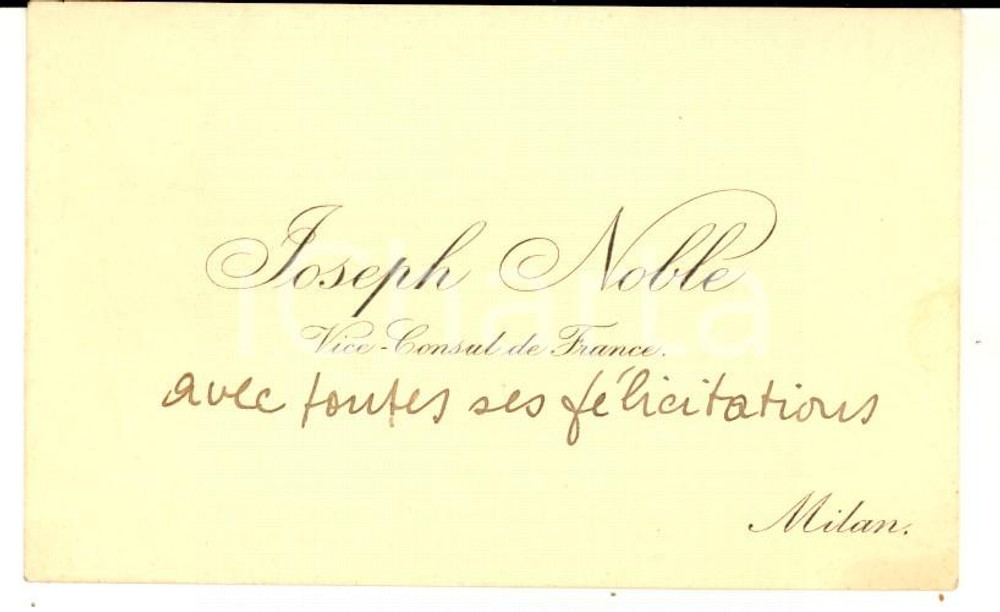 Joseph Noble
Vice-Consul de France.
avec toutes ses félicitations
Milan.